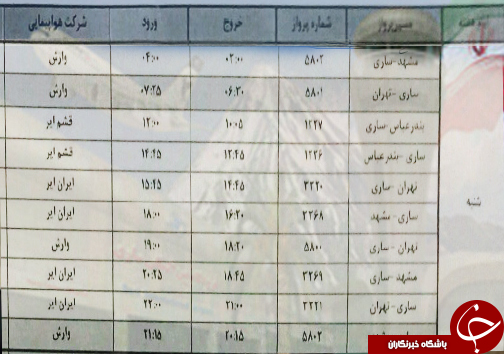 مسیر پرواز شماره پرواز خروج ورود شرکت هواپیمایی
مشهد-ساری ۵۸۰۲ ۰۳:۰۰ ۰۴:۰۰ وارش
ساری-تهران ۵۸۰۱ ۰۶:۳۰ ۰۷:۲۵ وارش
بندرعباس-ساری ۱۲۲۷ ۱۰:۰۵ ۱۲:۰۰ قشم ایر
ساری-بندرعباس ۱۲۲۶ ۱۲:۴۵ ۱۴:۴۵ قشم ایر
تهران-ساری ۳۲۲۰ ۱۴:۴۵ ۱۵:۴۵ ایران ایر
شنبه ساری-مشهد ۳۲۶۸ ۱۶:۳۰ ۱۸:۰۰ ایران ایر
تهران-ساری ۵۸۰۰ ۱۸:۲۰ ۱۹:۰۰ وارش
مشهد-ساری ۳۲۶۹ ۱۸:۴۵ ۲۰:۲۵ ایران ایر
ساری-تهران ۳۲۲۱ ۲۱:۰۰ ۲۲:۰۰ ایران ایر
۵۸۰۲ ۲۰:۱۵ ۲۱:۱۵ وارش
باشگاه خبرنگاران